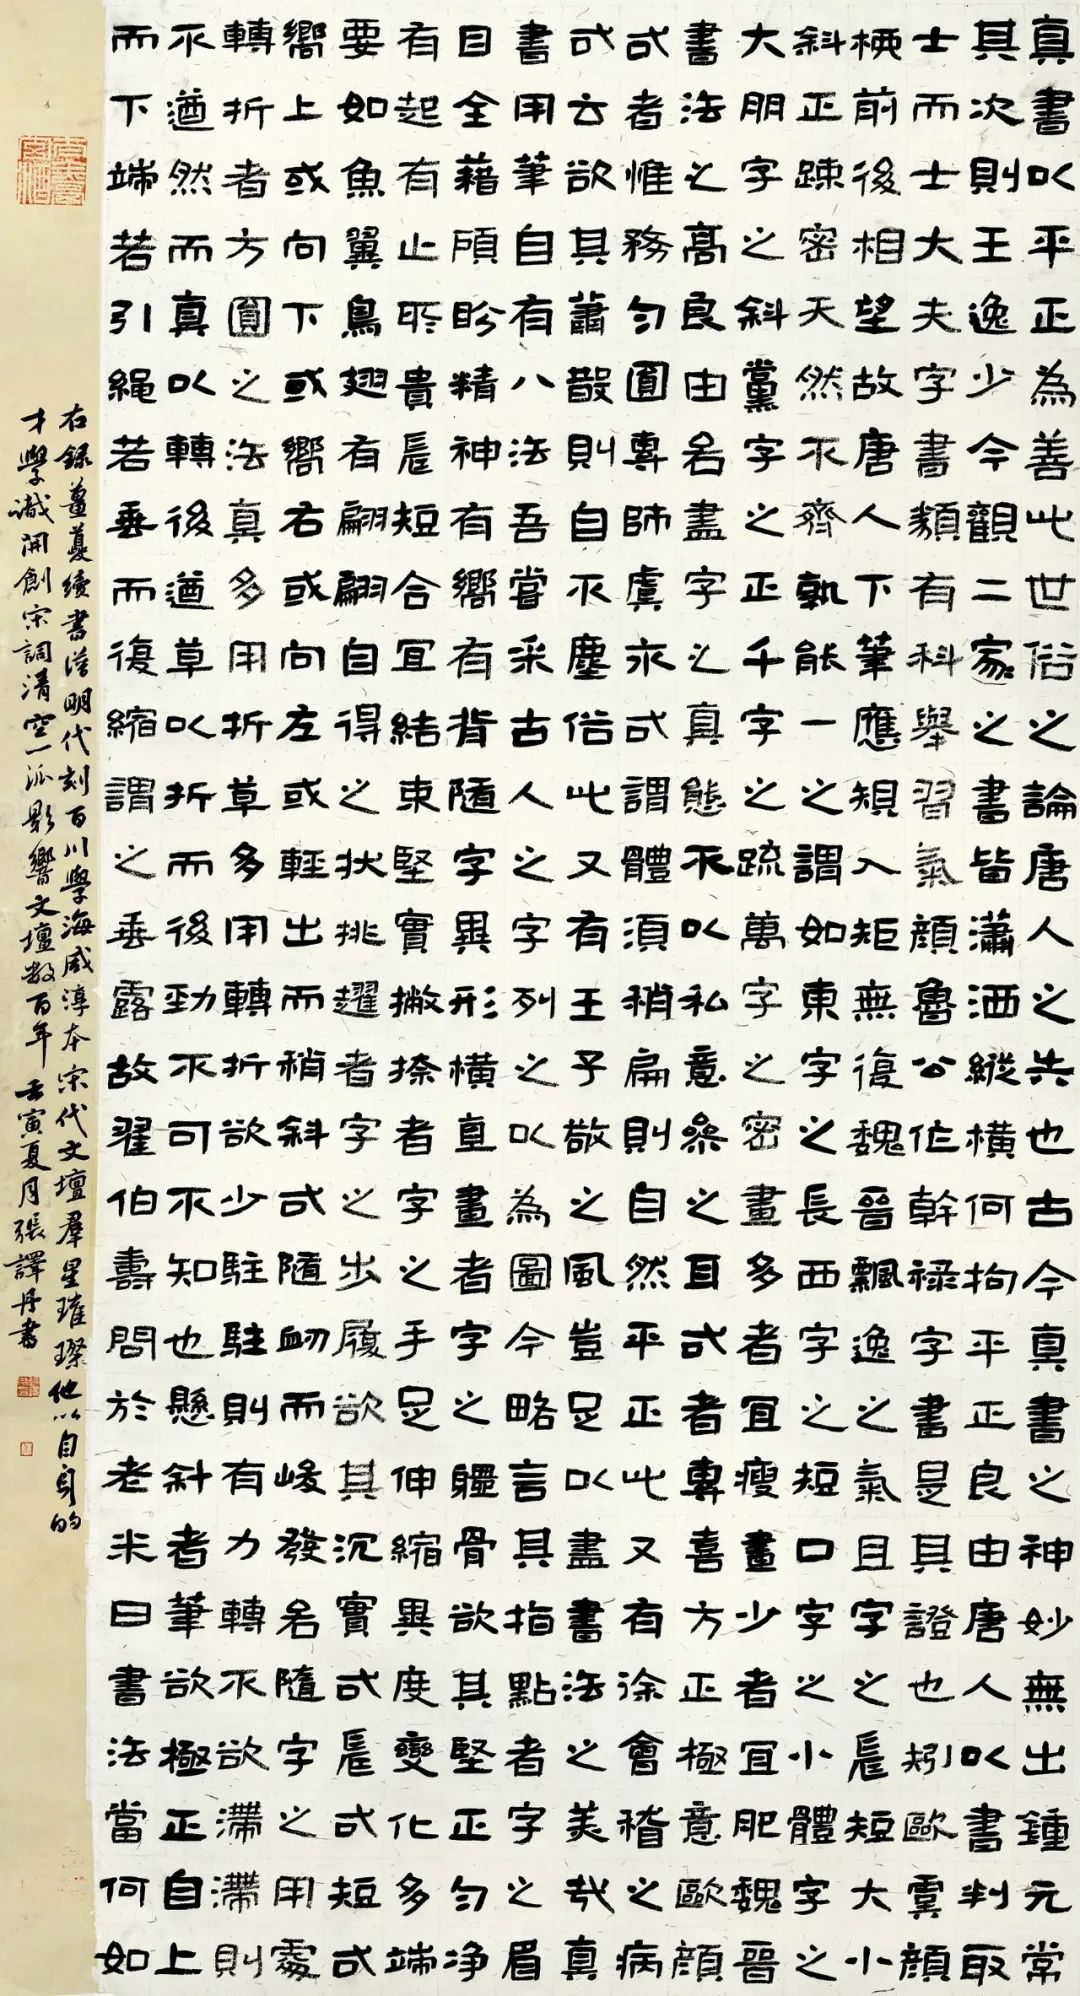 真書以平正為善此世俗之論唐人之失也古今真書之神妙無出鍾元常
其次則王逸少今觀二家之書皆瀟洒縱橫何拘平正良由唐人以書判取
士而士大夫字書類有科舉習氣顏魯公作幹祿字書是其證也矧歐虞顏
柳前後相望故唐人下筆應規入矩無復魏晉飄逸之氣且字之長短大小
斜正疎密天然不齊孰能一之謂如東字之長西字之短口字之小體字之
大朋字之斜黨字之正千字之疏萬字之密畫多者宜瘦畫少者宜肥魏晉
書法之高良由名盡字之真態不以私意參之耳或者專喜方正極意歐顏
或者惟務勻圓專師虞永或謂體須稍扁則自然平正此又有徐會稽之病
或云欲其蕭散則自不塵俗此又有王子敬之風豈足以盡書法之美哉真
書用筆自有八法吾嘗采古人之字列之以為圖今略言其指點者字之眉
目全藉顧盼精神有嚮有背隨字異形橫直畫者字之體骨欲其堅正勻净
有起有止所貴長短合宜結束堅實撇捺者字之手足伸縮異度變化多端
要如魚翼鳥翅有翩翩自得之狀挑趯者字之步履欲其沉實或長或短或
嚮上或向下或嚮右或向左或輕出而稍斜或隨衂而峻發名隨字之用處
轉折者方圓之法真多用折草多用轉折欲少駐駐則有力轉不欲滯滯則
不遒然而真以轉後遒草以折而後勁不可不知也懸斜者筆欲極正自上
而下端若引繩若垂而復縮謂之垂露故翟伯壽問於老米曰書法當何如
右錄薑夔續書譜明代刻百川學海咸淳本宋代文壇群星璀璨他以自身的
才學識開創宋詞清空一派影響文壇數百年壬寅夏月張譯丹書